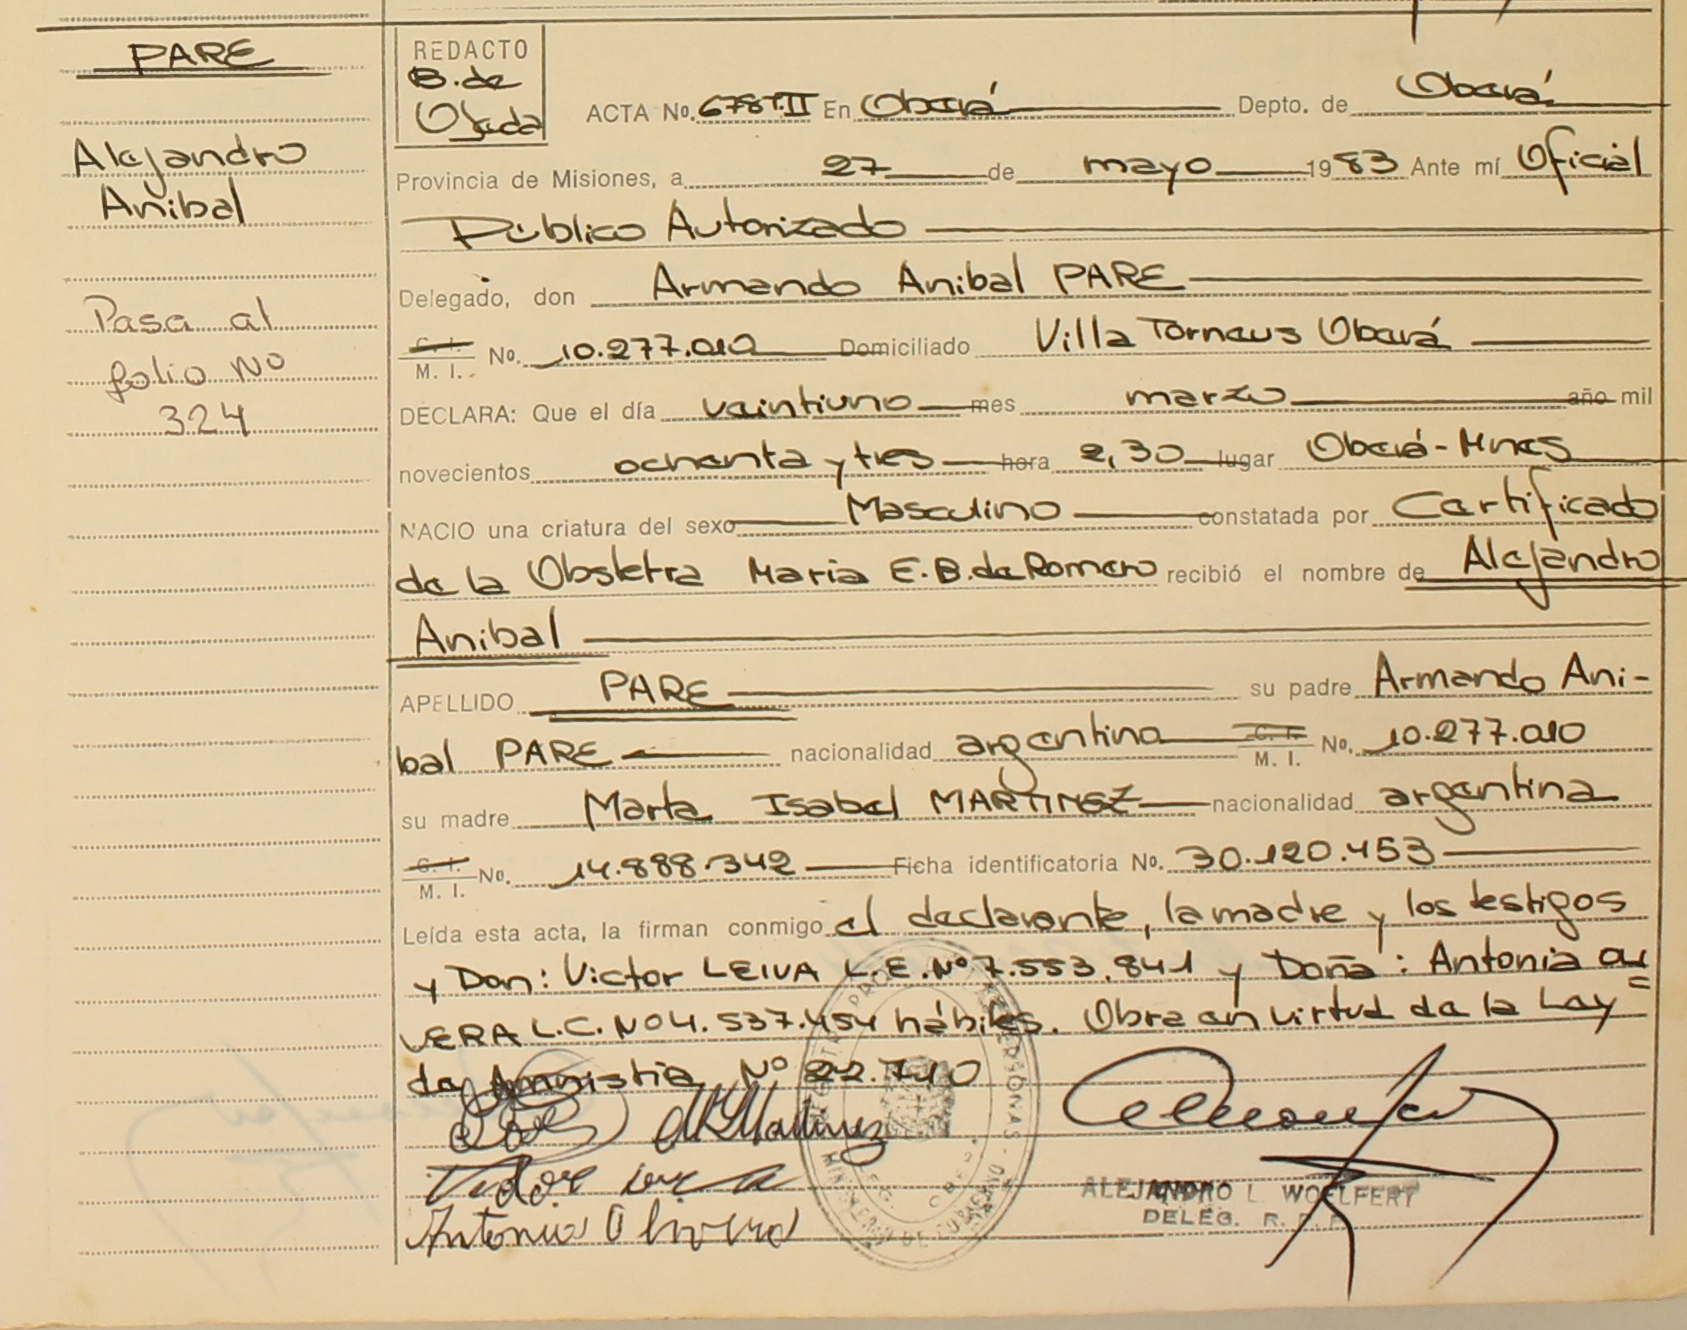 PARE
Alejandro
Anibal
Pasa al
folio No
324
REDACTO
B. de
Ojeda
ACTA No. 678 T. II En Oberá Depto. de Oberá
Provincia de Misiones, a 27 de mayo 1983 Ante mí Oficial
Público Autorizado
Delegado, don Armando Anibal PARE
C. I.
M. I. No. 10.277.010 Domiciliado Villa Torneus Oberá
DECLARA: Que el día veintiuno mes marzo año mil
novecientos ochenta y tres hora 2,30 lugar Oberá-Mnes
NACIO una criatura del sexo Masculino constatada por Certificado
de la Obstetra Maria E. B. de Romero recibió el nombre de Alejandro
Anibal
APELLIDO PARE su padre Armando Ani-
bal PARE nacionalidad argentina C. I.
M. I. No. 10.277.010
su madre Marta Isabel MARTINEZ nacionalidad argentina
C. I.
M. I. No. 14.888.342 Ficha identificatoria No. 30.120.453
Leída esta acta, la firman conmigo el declarante, la madre y los testigos
y Don: Victor LEIVA L.E. Nº 7.553.841 y Doña: Antonia OLI=
VERA L.C. Nº 4.537.454 hábiles. Obra en virtud de la Ley
de Amnistia Nº 22.710
M Martinez
Antonia Olivera
ALEJANDRO L. WOELFERT
DELEG. R. P. P.